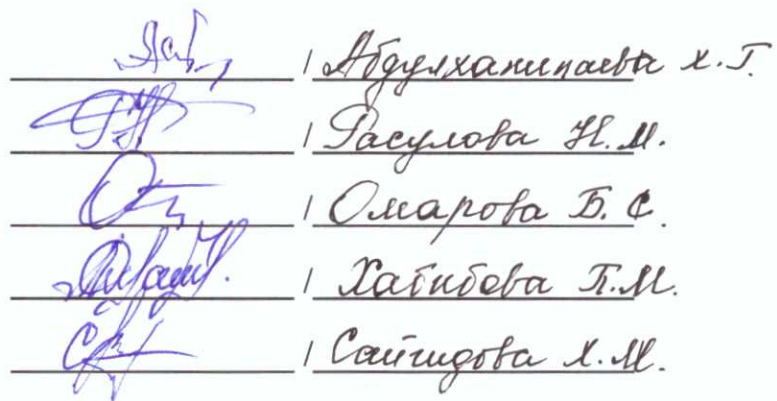 / Абдулханипаева Х.Г.
/ Расулова Н.М.
/ Омарова Б.С.
/ Хабибова П.М.
/ Сайгидова Х.М.